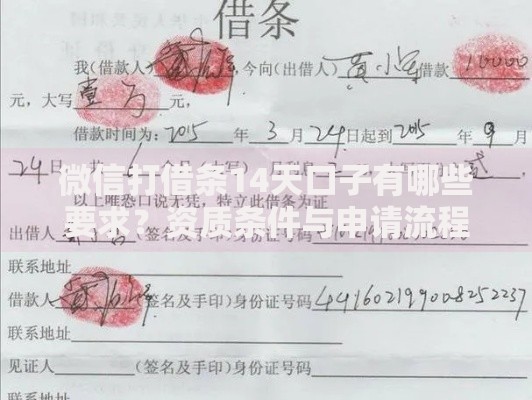 借条
我(借款人) 今向(出借人) 黄小军 借款 10000
元,大写 壹万 元,
借款时间为:2015 年 3 月 24 日起到 2015 年 9 月
24 日
微信打借条14天口子有哪些
要求?资质条件与申请流程
以上唯恐口说无凭,特立此借条为证
出借人 签名及手印)身份证号码
联系地址
借款人 签名及手印)身份证号码 441602199008252237
联系地址
见证人 (签名及手印)身份证号码
联系地址